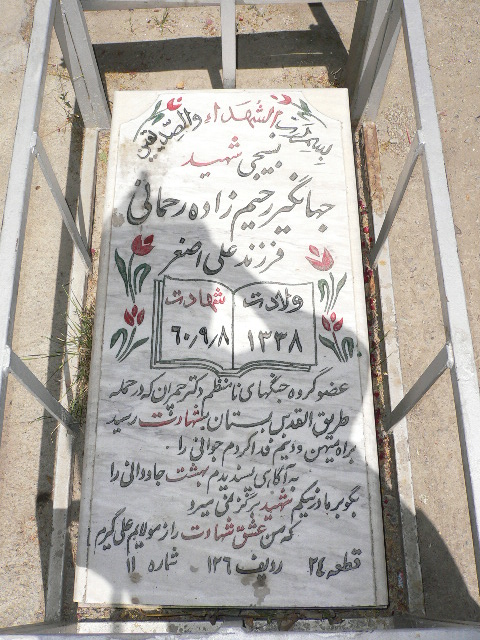 بسم رب الشهداء والصدیقین
بسیجی شهید
جهانگیر رحیم زاده رحمانی
فرزند علی اصغر
ولادت
۱۳۳۸
شهادت
۶۰/۹/۸
عضو گروه جنگهای نامنظم دکتر چمران که در حمله
طریق القدس بستان بشهادت رسید
براه میهن و دینم فدا کردم جوانی را
به آگاهی پسندیدم بهشت جاودانی را
بگو بر مادر نیکم شهید هرگز نمی میرد
که من عشق شهادت را ز مولایم علی گیرم
قطعه ۲۴ ردیف ۱۳۶ شماره ۱۱